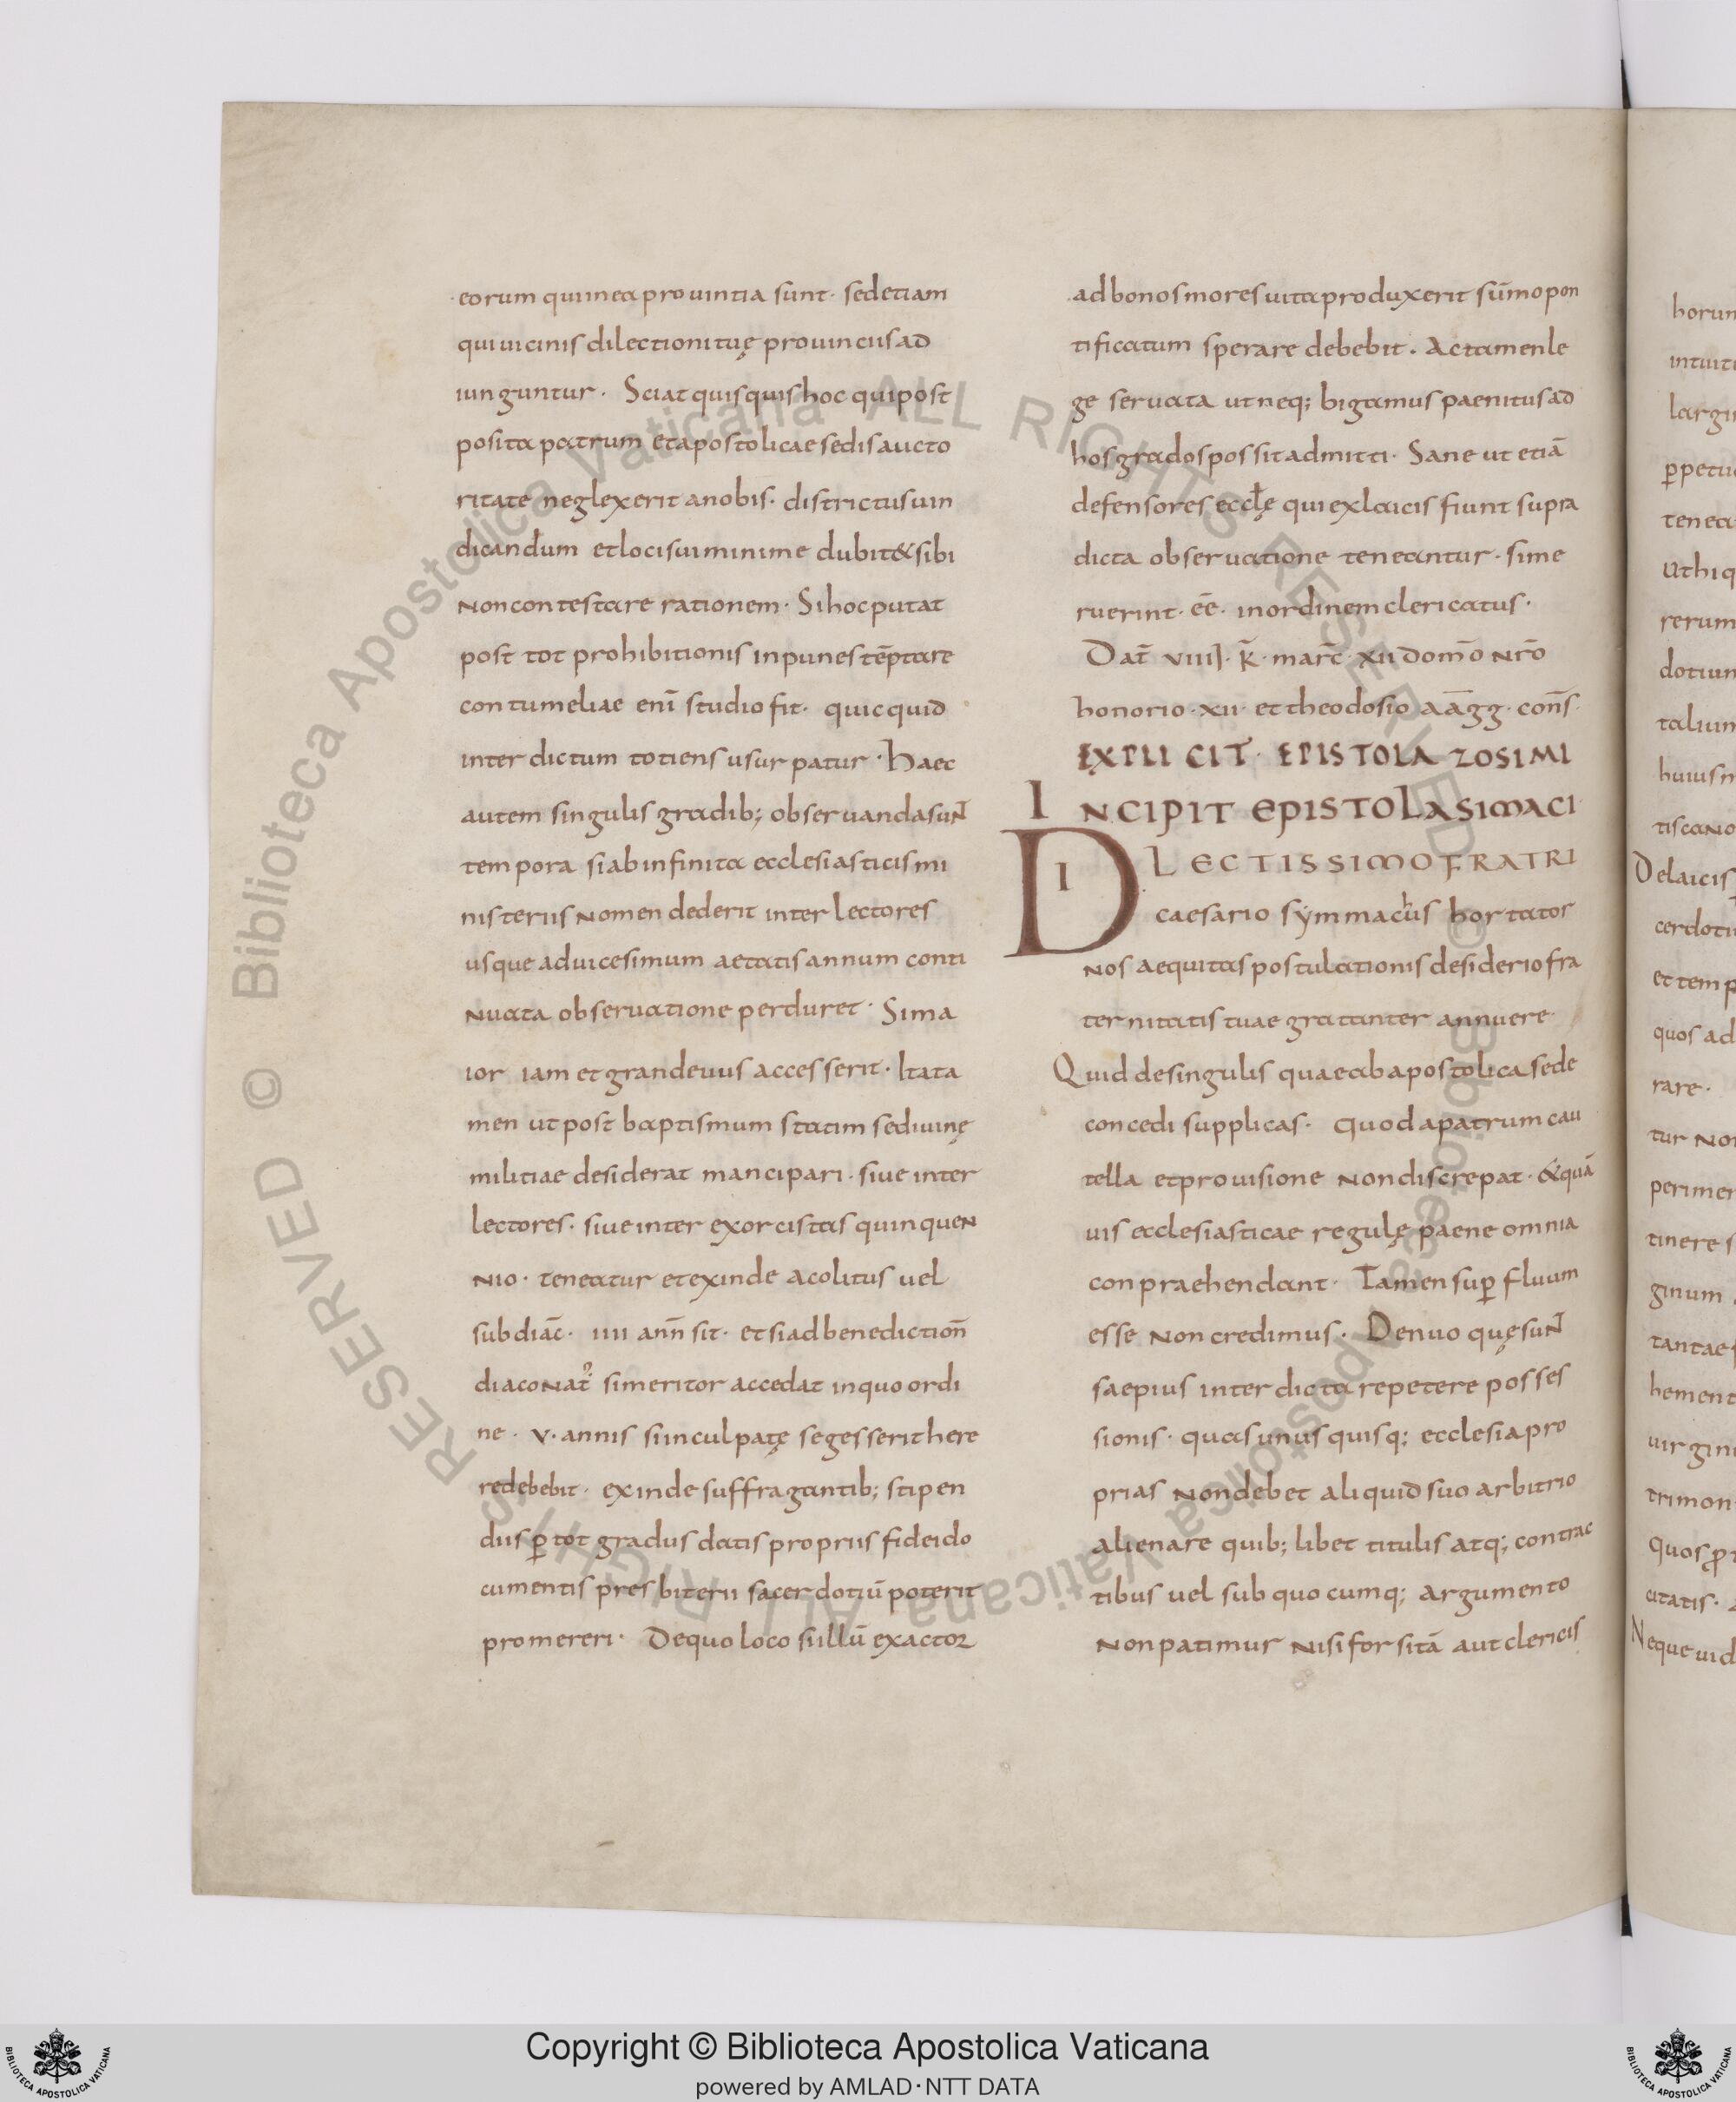 eorum qui in ea prouintia sunt· sed etiam
qui uicinis dilectioni tuę prouinciis ad
iunguntur· Sciat quisquis hoc qui post
posita patrum et apostolicae sedis aucto
ritate neglexerit a nobis· districtus uin
dicandum et loci sui minime dubit& sibi
non contestare rationem· Si hoc putat
post tot prohibitionis inpunes tēptare
contumeliae enī studio fit· quicquid
interdictum totiens usurpatur· Haec
autem singulis gradib; obseruanda suNT
tempora si ab infinita ecclesiasticis mi
nisteriis nomen dederit inter lectores
usque ad uicesimum aetatis annum conti
nuata obseruatione perduret· Si ma
ior iam et grandeuus accesserit· Ita ta
men ut post baptismum statim se diuinę
militiae desiderat mancipari· siue inter
lectores· siue inter exorcistas quinquen
nio· teneatur et exinde acolitus uel
subdiāc· iiii ann̄ sit· et si ad benediction̄
diaconat᾿ si meritor accedat in quo ordi
ne· v· annis si inculpatę se gesserit here
re debebit· exinde suffragantib; stipen
diis ꝑ tot gradus datis propriis fidei do
cumentis presbiterii sacerdotiū poterit
promereri· De quo loco si illū exactor
ad bonos mores uita produxerit sūmo pon
tificatum sperare debebit. Ac tamen le
ge seruata ut neq; bigamus paenitus ad
hos grados possit admitti· Sane ut etiā
defensores eccłę qui ex laicis fiunt supra
dicta obseruatione teneantur· si me
ruerint· eē· in ordinem clericatus·
Dat̄ viiij· k̄· marc̄· xii domō nrō
honorio· xii· et theodosio aāgg· con̄s·
EXPLICIT· EPISTOLA ZOSIMI
INCIPIT EPISTOLA SIMACI
DILECTISSIMO FRATRI
caesario symmachus hortator
nos aequitas postulationis desiderio fra
ternitatis tuae gratanter annuere·
Quid de singulis quae ab apostolica sede
concedi supplicas· Quod a patrum cau
tella et prouisione non discrepat· & quā
uis ecclesiasticae regulę paene omnia
conpraehendant· Tamen suꝑfluum
esse non credimus· Denuo quę suNT
saepius interdicta repetere posses
sionis· quas unusquisq; ecclesia pro
prias non debet aliquid suo arbitrio
alienare quib; libet titulis atq; contrac
tibus uel sub quocumq; argumento
non patimur nisi forsitā aut clericis
horum
largi
ꝑpetu
tenea
ut hi q
rerum
dotium
talium
huiusm
tis cano
De laicis
cerdoti
et temp
quos ad
rare·
tur non
perimer
tinere s
ginum
tantae
hement
uirgin
trimon
citatis·
Neque uid
© Biblioteca Apostolica Vaticana ALL RIGHTS RESERVED © Biblioteca Apostolica Vaticana ALL RIGHTS RESERVED
Copyright © Biblioteca Apostolica Vaticana
powered by AMLAD·NTT DATA
BIBLIOTECA APOSTOLICA VATICANA
BIBLIOTECA APOSTOLICA VATICANA